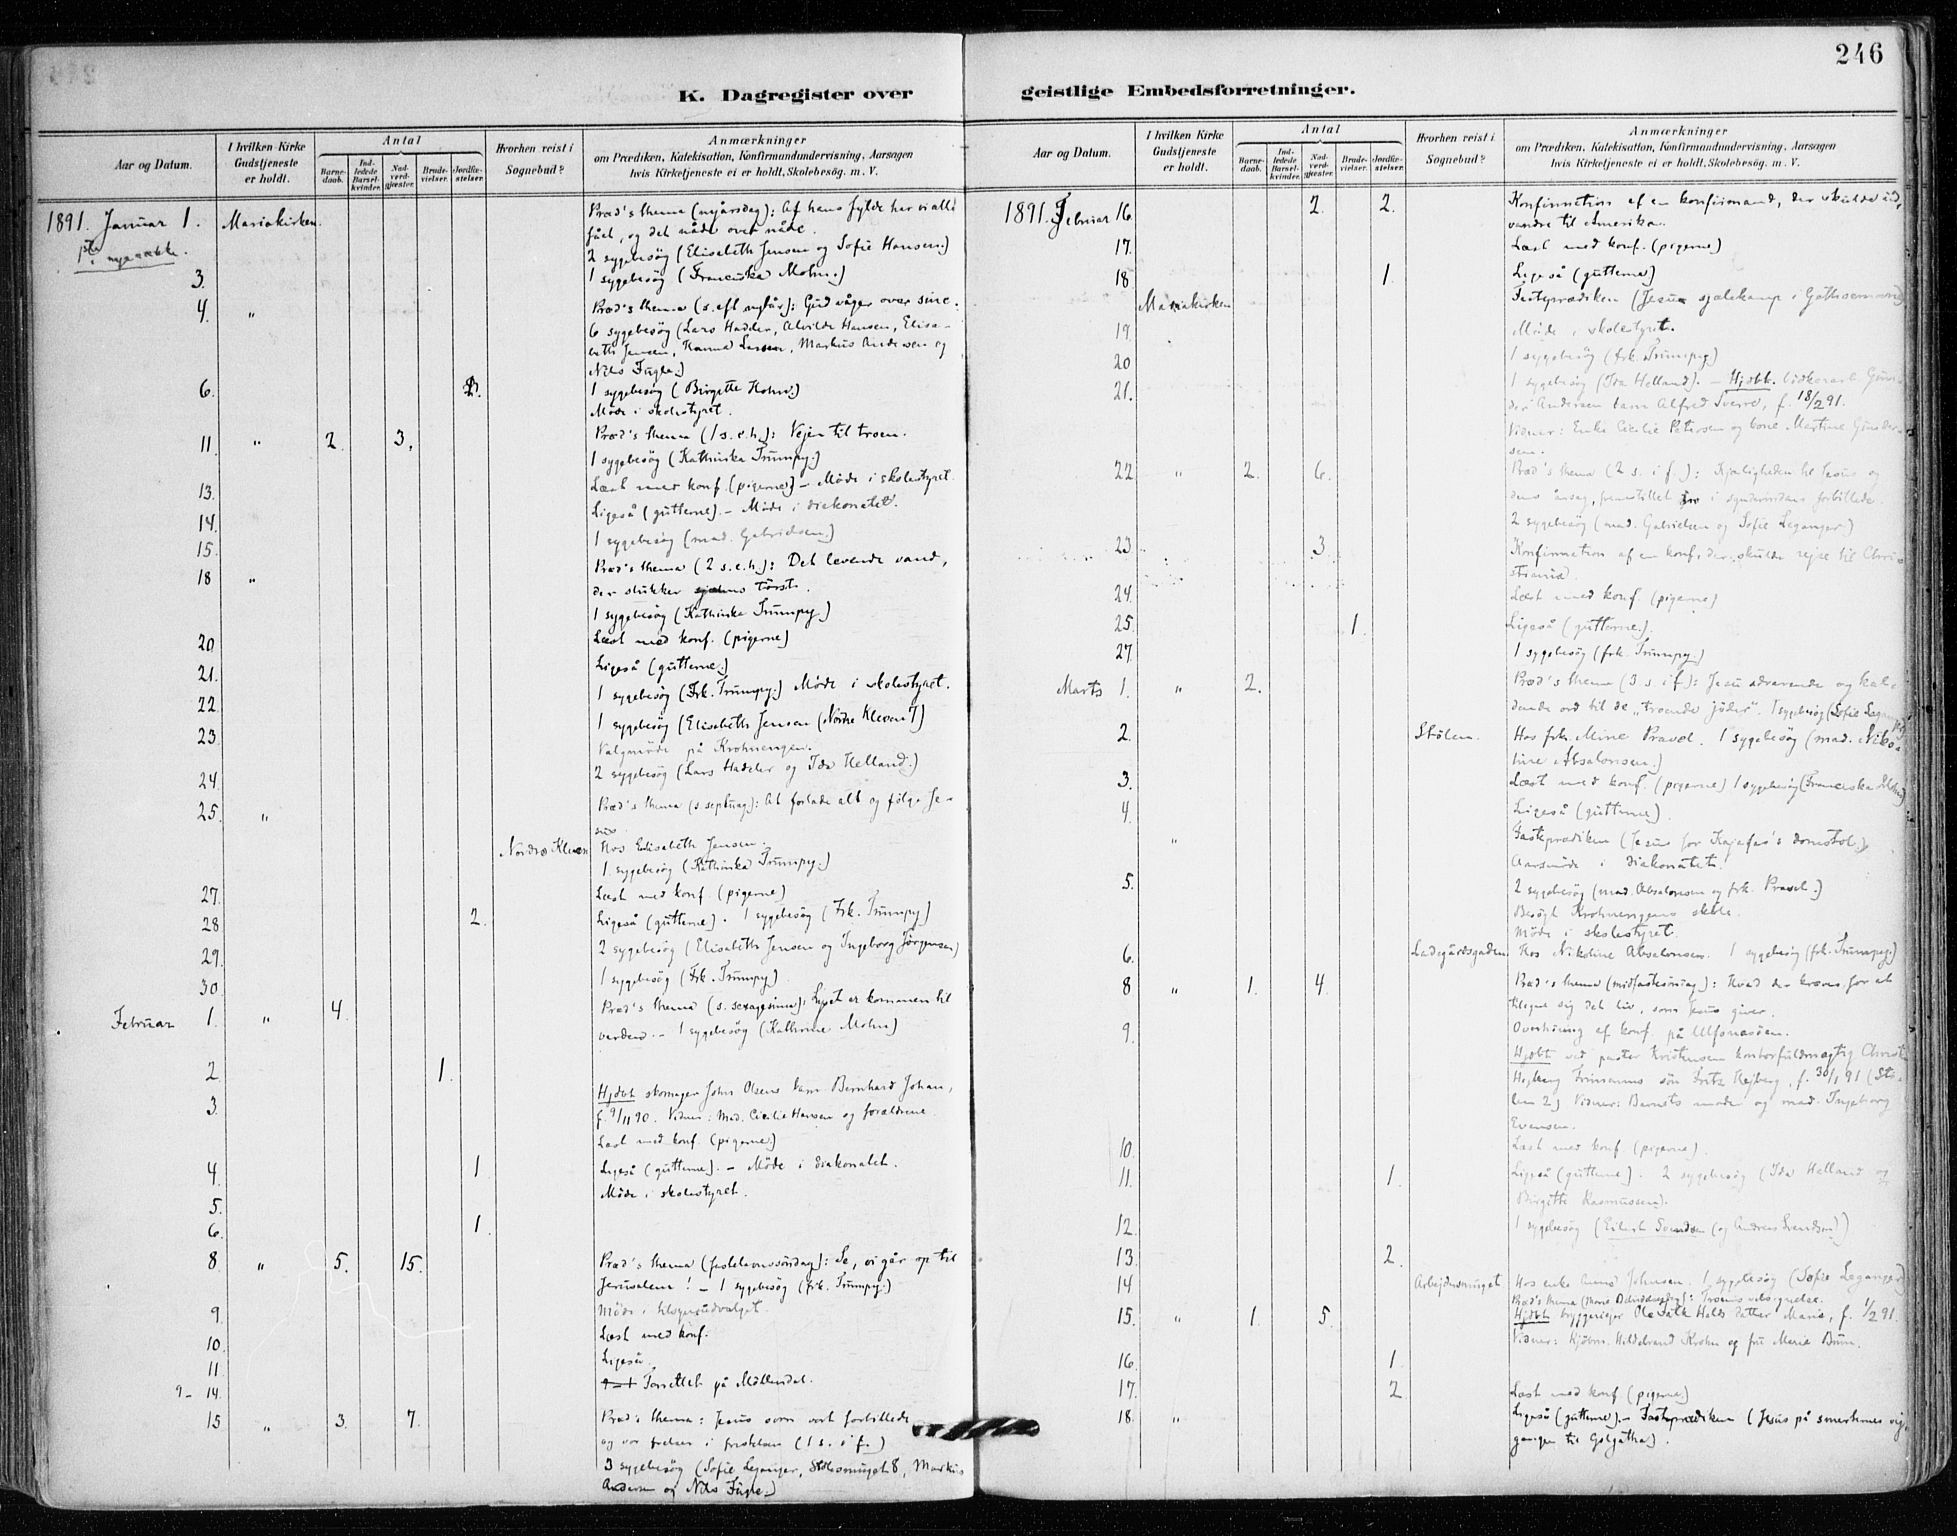 246
K. Dagregister over geistlige Embedsforretninger.
Aar og Datum.
I hvilken Kirke Gudstjeneste er holdt.
Antal
Barne-daab.
Ind-ledede Barsel-kvinder.
Nad-verd-gjæster.
Brude-vielser.
Jordfæ-stelser.
Hvorhen reist i Sognebud?
Anmærkninger
om Prædiken, Katekisation, Konfirmandundervisning, Aarsagen
hvis Kirketjeneste ei er holdt, Skolebesög. m. V.
1891. Januar 1. Mariakirken. Præd's thema (nyårsdag): Af hans fylde har vi alle
fået, og det nåde over nåde.
2 sygebesög (Elisabeth Jensen og Sofie Hansen.)
3. 1 sygebesög (Franciska Mohn.)
4. " Præd's thema (s. eft. nytår): Gud våger over sine.
6 sygebesög (Lars Hadeler, Alvilde Hansen, Elisa-
beth Jensen, Hanna Larsen, Markus Andersen og
Nils Fugle.)
6. 2. 1 sygebesög (Birgitte Holm.)
Möde i skolestyret.
11 " 2. 3. Præd's thema (1 s. e. h.): Vejen til troen.
1 sygebesög (Kathinka Trumpy.)
13. Læst med konf. (pigerne) – Möde i skolestyret.
14. Ligeså (gutterne). – Möde i diakonatet.
15. 1 sygebesög (mad. Gabrielsen.)
18 " Præd's thema (2 s. e. h.): Det levende vand,
der slukker sjælens törst.
1 sygebesög (Kathinka Trumpy.)
20 Læst med konf. (pigerne)
21. Ligeså (gutterne.)
22 1 sygebesög (Frk. Trumpy.) Möde i skolestyret.
23 1 sygebesög (Elisabeth Jensen (Nordre Kleven 7)
Valgmöde på Krohnengen.
24. 2 sygebesög (Lars Hadeler og Ida Helland.)
25. " Præd's thema (s. septuag.): At forlade alt og fölge Je-
sus.
Nordre Kleven Hos Elisabeth Jensen.
1 sygebesög (Kathinka Trumpy.)
27. Læst med konf. (pigerne)
28 2. Ligeså (gutterne). 1 sygebesög (Frk. Trumpy)
29. 2 sygebesög (Elisabeth Jensen og Ingeborg Jörgensen)
30. 1 sygebesög (Frk. Trumpy)
Februar 1. " 4. Præd's thema (s. sexagesima): Lyset er kommen til
verden. – 1 sygebesög (Kathrine Mohn)
2 1.
3. Hjdbt skomager John Olsens barn Bernhard Johan,
f. 9/11 90. Vidner: Mad. Cicilie Hansen og forældrene.
Læst med konf. (pigerne.)
4. 1 Ligeså (gutterne). – Möde i diakonatet.
5. Möde i skolestyret.
6. 1.
8 " 5. 15. Præd's thema (fastelavnssöndag): Se, vi går op til
Jerusalem! – 1 sygebesög (frk. Trumpy)
9. Möde i tilsynsudvalget.
10. Læst med konf.
11 Ligeså.
9 – 14. Forrettet på Möllendal.
15 " 3. 7. Præd's thema: Jesus som vort forbillede
og vor frelser i fristelsen (1 s. i f.)
3 sygebesög (Sofie Leganger, Stölesmuget 8, Markus
Andersen og Nils Fugle.)
Aar og Datum.
I hvilken Kirke Gudstjeneste er holdt.
Antal
Barne-daab.
Ind-ledede Barsel-kvinder.
Nad-verd-gjæster.
Brude-vielser.
Jordfæ-stelser.
Hvorhen reist i Sognebud?
Anmærkninger
om Prædiken, Katekisation, Konfirmandundervisning, Aarsagen
hvis Kirketjeneste ei er holdt, Skolebesög. m. V.
1891. Februar 16. 2. 2. Konfirmation af en konfirmand, der skulde ud-
vandre til Amerika.
17. Læst med konf. (pigerne)
18 1. Ligeså (gutterne)
Mariakirken Fasteprædiken (Jesu sjælekamp i Gethsemane)
19 Möde i skolestyret.
20 1 sygebesög (frk. Trumpy)
21. 1 sygebesög (Ida Helland). – Hjdbt.
Andersen barn Alfred Sverre, f. 18/2 91.
Vidner: Enke Cecilie Petersen og kone Martine Gunder-
sen.
22 " 2. 6. Præd's thema (2 s. i f.): Kjærligheden til Jesus og
dens årsag, fremstillet i synderindens forbillede.
2 sygebesög (mad. Gabrielsen og Sofie Leganger)
23 3 Konfirmation af en konf., der skulde rejse til Chri-
stiania.
24. Læst med konf. (pigerne)
25 1. Ligeså (gutterne.)
27. 1 sygebesög (frk. Trumpy.)
Marts 1. " 2. Præd's thema (3 s. i f.): Jesu advarende og kal-
dende ord til de „troende jöder". 1 sygebesög (Sofie Leganger)
2. Stölen. Hos frk. Mine Pravel. 1 sygebesög (mad. Niko-
line Absalonsen.)
3. Læst med konf. (pigerne) 1 sygebesög (Franciska Mohn)
4. Ligeså (gutterne).
" Fasteprædiken (Jesus for Kajafas's domstol.)
Aarsmöde i diakonatet.
5. 2 sygebesög (mad. Absalonsen og frk. Pravel.)
Besögt Krohnengens skole.
Möde i skolestyret.
6. Ladegårdsgaden. Hos Nikoline Absalonsen. 1 sygebesög (frk. Trumpy.)
8 " 1. 4. Præd's thema (midfastesöndag): Hvad der kræves for at
tilegne sig det liv, som Jesus giver.
9. Overhöring af konf. på Ulfonasöen.
Hjdbt ved pastor Kristensen kontorfuldmægtig Christ
Hejberg sön Fritz Hejberg, f. 30/1 91 (Stö-
len 2) Vidner: Barnets moder og mad. Ingeborg
Evensen.
10. Læst med konf. (pigerne).
11. 1. Ligeså (gutterne). 2 sygebesög (Ida Helland og
Birgitte Rasmussen).
12. 1 sygebesög (Eilert Svendsen (og Andreas Svendsen))
13. 2.
14 Arbejdersmuget Hos enke Anna Johnsen. 1 sygebesög (Sofie Leganger)
Præd's thema (Marie Bebudelsesdag): Troens velsignelse.
15. " 1. 5. Hjdbt bryggerieier Ole Falk Halds datter Marie, f. 1/2 91.
Vidner: Kjöbm. Hildebrand Krohn og fru Marie Brun.
16. 1.
17. 2 Læst med konf (pigerne)
18. " Ligeså (gutterne). – Fasteprædiken (Jesus på smerternes vej,
gangen til Golgatha).